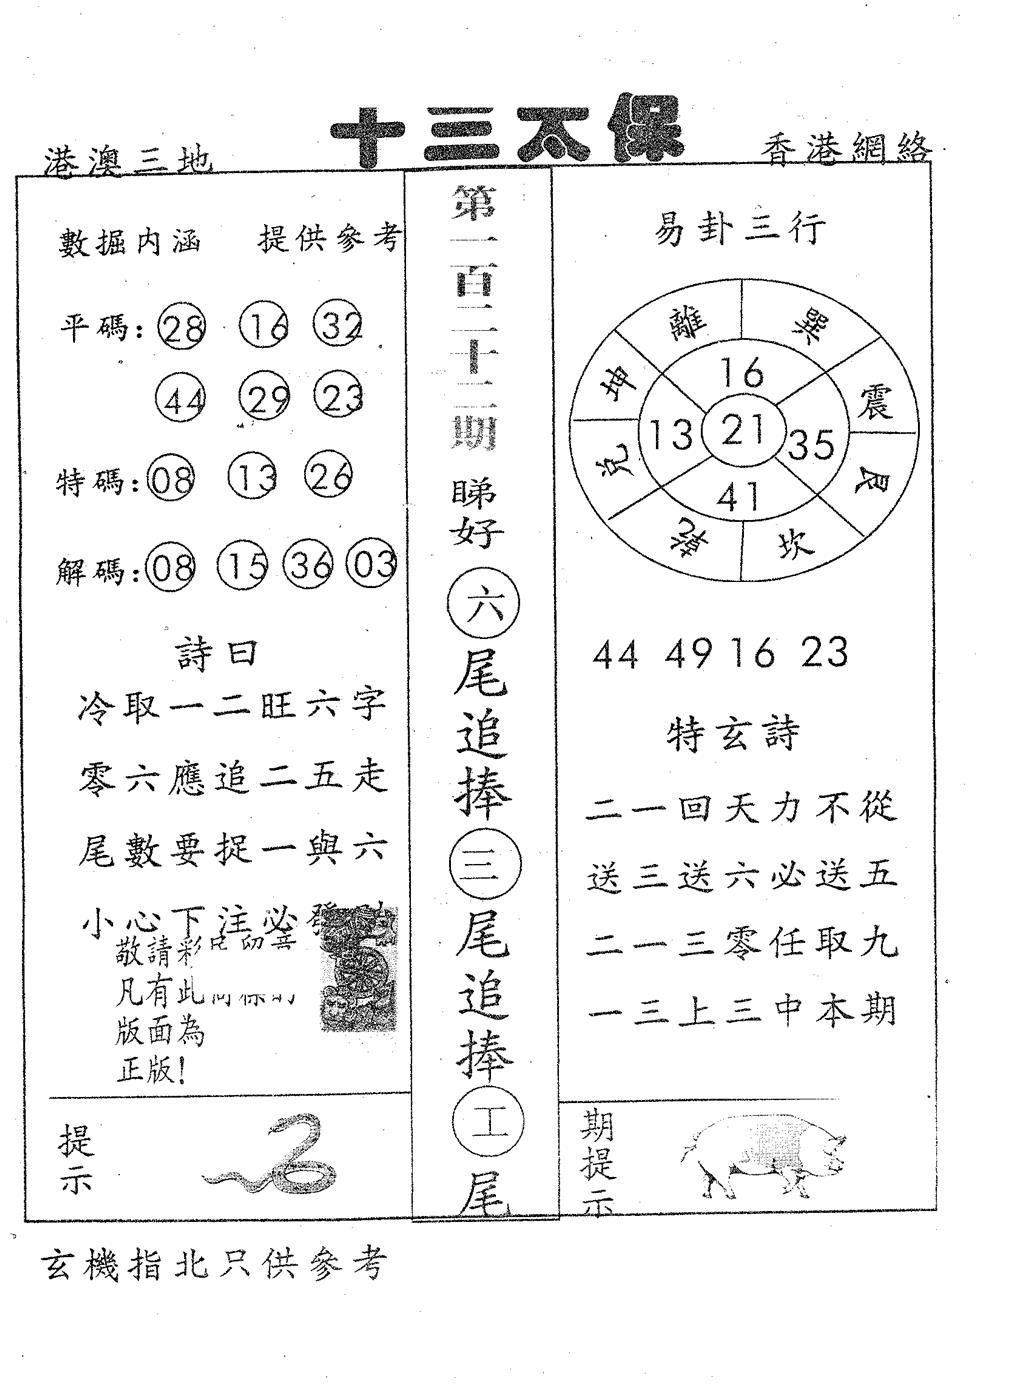 十三太保
港澳三地
香港網絡
數掘內涵 提供參考
平碼: 28 16 32
44 29 23
特碼: 08 13 26
解碼: 08 15 36 03
詩曰
冷取一二旺六字
零六應追二五走
尾數要捉一與六
小心下注必發
敬請彩民留意
凡有此商標的
版面為
正版!
提示
第一百二十二期
睇好
六
尾追捧
三
尾追捧
工
尾
易卦三行
離 巽
坤 震
兌 艮
乾 坎
16
13 21 35
41
44 49 16 23
特玄詩
二一回天力不從
送三送六必送五
二一三零任取九
一三上三中本期
期提示
玄機指北只供參考